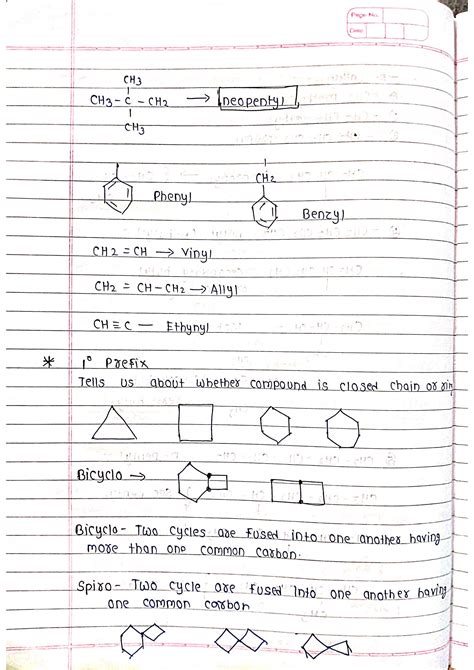 Page No.
Date:
CH3
CH3 - C - CH2 → neopentyl
CH3
Phenyl
CH2
Benzyl
CH2 = CH → Vinyl
CH2 = CH - CH2 → Allyl
CH ≡ C — Ethynyl
* 1° Prefix
Tells us about whether compound is closed chain or rin
Bicyclo →
Bicyclo - Two cycles are fused into one another having
more than one common carbon.
Spiro - Two cycle are fused into one another having
one common carbon